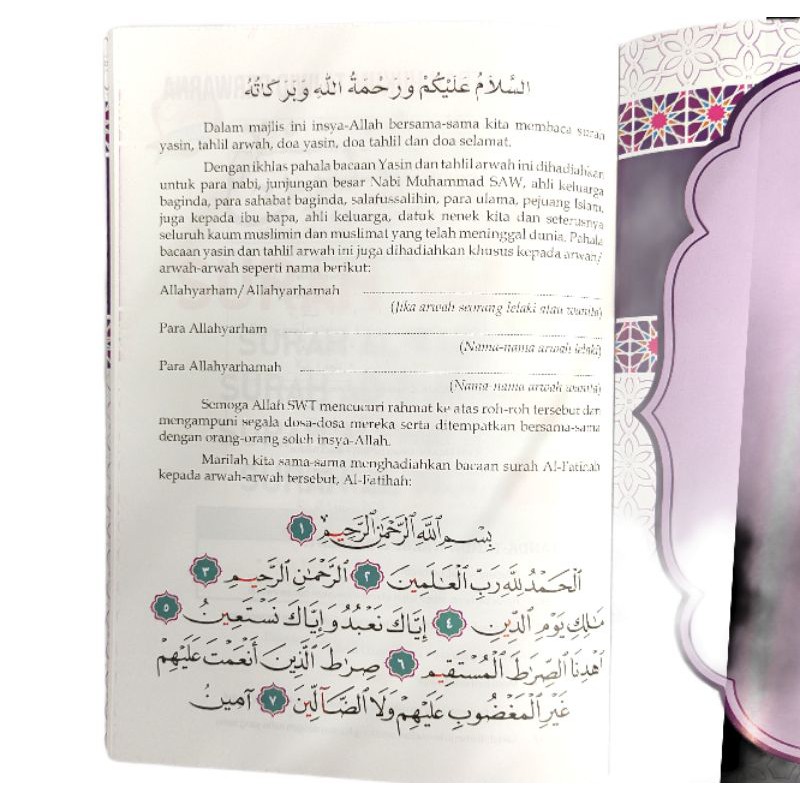 السَّلَامُ عَلَيْكُمْ وَرَحْمَةُ اللهِ وَبَرَكَاتُهُ
Dalam majlis ini insya-Allah bersama-sama kita membaca surah
yasin, tahlil arwah, doa yasin, doa tahlil dan doa selamat.
Dengan ikhlas pahala bacaan Yasin dan tahlil arwah ini dihadiahkan
untuk para nabi, junjungan besar Nabi Muhammad SAW, ahli keluarga
baginda, para sahabat baginda, salafussalihin, para ulama, pejuang Islam,
juga kepada ibu bapa, ahli keluarga, datuk nenek kita dan seterusnya
seluruh kaum muslimin dan muslimat yang telah meninggal dunia. Pahala
bacaan yasin dan tahlil arwah ini juga dihadiahkan khusus kepada arwah/
arwah-arwah seperti nama berikut:
Allahyarham/Allahyarhamah ....................
(Jika arwah seorang lelaki atau wanita)
Para Allahyarham ....................
(Nama-nama arwah lelaki)
Para Allahyarhamah ....................
(Nama-nama arwah wanita)
Semoga Allah SWT mencucuri rahmat ke atas roh-roh tersebut dan
mengampuni segala dosa-dosa mereka serta ditempatkan bersama-sama
dengan orang-orang soleh insya-Allah.
Marilah kita sama-sama menghadiahkan bacaan surah Al-Fatihah
kepada arwah-arwah tersebut, Al-Fatihah:
بِسْمِ اللَّهِ الرَّحْمَٰنِ الرَّحِيمِ ١
الْحَمْدُ لِلَّهِ رَبِّ الْعَالَمِينَ ٢ الرَّحْمَٰنِ الرَّحِيمِ ٣
مَالِكِ يَوْمِ الدِّينِ ٤ إِيَّاكَ نَعْبُدُ وَإِيَّاكَ نَسْتَعِينُ ٥
اهْدِنَا الصِّرَاطَ الْمُسْتَقِيمَ ٦ صِرَاطَ الَّذِينَ أَنْعَمْتَ عَلَيْهِمْ
غَيْرِ الْمَغْضُوبِ عَلَيْهِمْ وَلَا الضَّالِّينَ ٧ آمِينَ